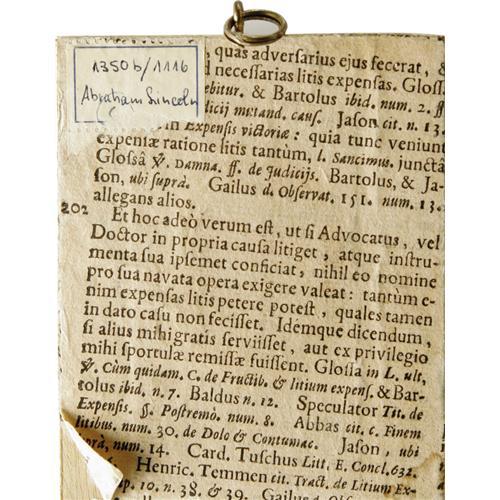 1350b/1116
Abraham Lincoln
, quas adversarius ejus fecerat, &
d necessarias litis expensas. Gloss
ebitur. & Bartolus ibid. num. 2. ff
dicij mutand. caus. Jason cit. n. 13.
in Expensis victoriæ: quia tunc veniunt
expensæ ratione litis tantùm, l. Sancimus. junctâ
Glossâ v. Damna. ff. de Judicijs. Bartolus, & Ja-
son, ubi suprà. Gailus d. Observat. 151. num. 13.
allegans alios.
202 Et hoc adeò verum est, ut si Advocatus, vel
Doctor in propria causa litiget, atque instru-
menta sua ipsemet conficiat, nihil eo nomine
pro sua navata opera exigere valeat: tantùm e-
nim expensas litis petere potest, quales tamen
in dato casu non fecisset. Idemque dicendum,
si alius mihi gratis serviisset, aut ex privilegio
mihi sportulæ remissæ fuissent. Glossa in L. ult,
v. Cùm quidam. C. de Fructib. & litium expens. & Bar-
tolus ibid, n. 7. Baldus n. 12. Speculator Tit. de
Expensis. §. Postremò. num. 8. Abbas cit. c. Finem
litibus. num. 30. de Dolo & Contumac. Jason, ubi
prà, num. 14. Card. Tuschus Litt. E. Concl. 632.
Henric. Temmen cit. Tract. de Litium Ex-
ap. 10. n. 38. & 39. Gailus d. Observ